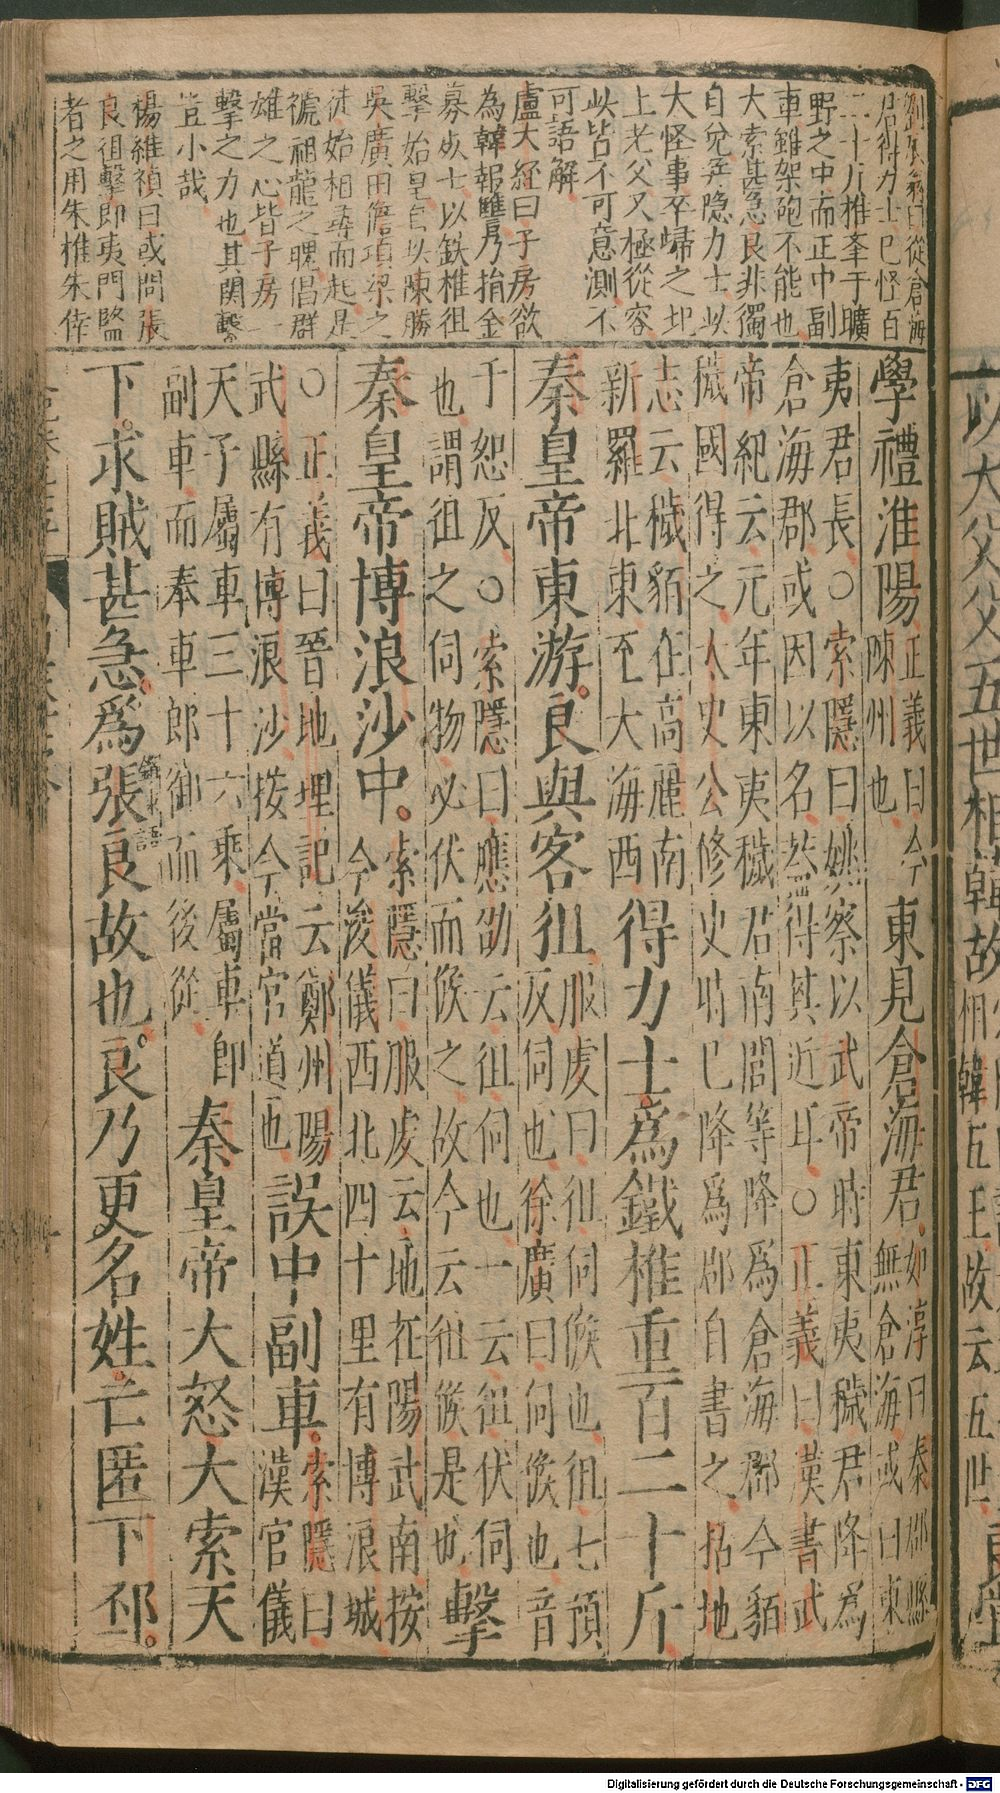 劉辰翁曰從倉海
君得力士已怪百
二十斤椎舉于曠
野之中而正中副
車雖架砲不能也
大索甚急良非獨
自免并隱力士以
大怪事卒歸之圯
上老父又極從容
以皆不可意測不
可語解
盧大經曰子房欲
為韓報讐乃捐金
募死士以鉄椎徂
擊始皇自以陳勝
吳廣田儋項梁之
徒始相尋而起是
褫祖龍之魄倡群
雄之心皆子房一
擊之力也其関繫
豈小哉
楊維禎曰或問張
良徂擊即夷門監
者之用朱椎朱倖
學禮淮陽正義曰今陳州也東見倉海君如淳曰秦郡縣無倉海或曰東
夷君長○索隱曰姚察以武帝時東夷穢君降為
倉海郡或因以名葢得其近耳○正義曰漢書武
帝紀云元年東夷穢君南閭等降為倉海郡今貊
穢國得之太史公修史時已降為郡自書之括地
志云穢貊在高麗南新羅北東至大海西得力士為鐵椎重百二十斤
秦皇帝東游良與客徂服虔曰徂伺候也徂七預反伺也徐廣曰伺候也音
千恕反○索隱曰應劭云徂伺也一云徂伏伺也謂徂之伺物必伏而候之故今云徂候是也擊
秦皇帝博浪沙中索隱曰服虔云地在陽武南按今浚儀西北四十里有博浪城
○正義曰晉地理記云鄭州陽武縣有博浪沙按今當官道也誤中副車索隱曰漢官儀
天子屬車三十六乘屬車即副車而奉車郎御而後從秦皇帝大怒大索天
下求賊甚急為張良故也良乃更名姓亡匿下邳
以大父父五世相韓故
相韓五王故云五世
Digitalisierung gefördert durch die Deutsche Forschungsgemeinschaft - DFG